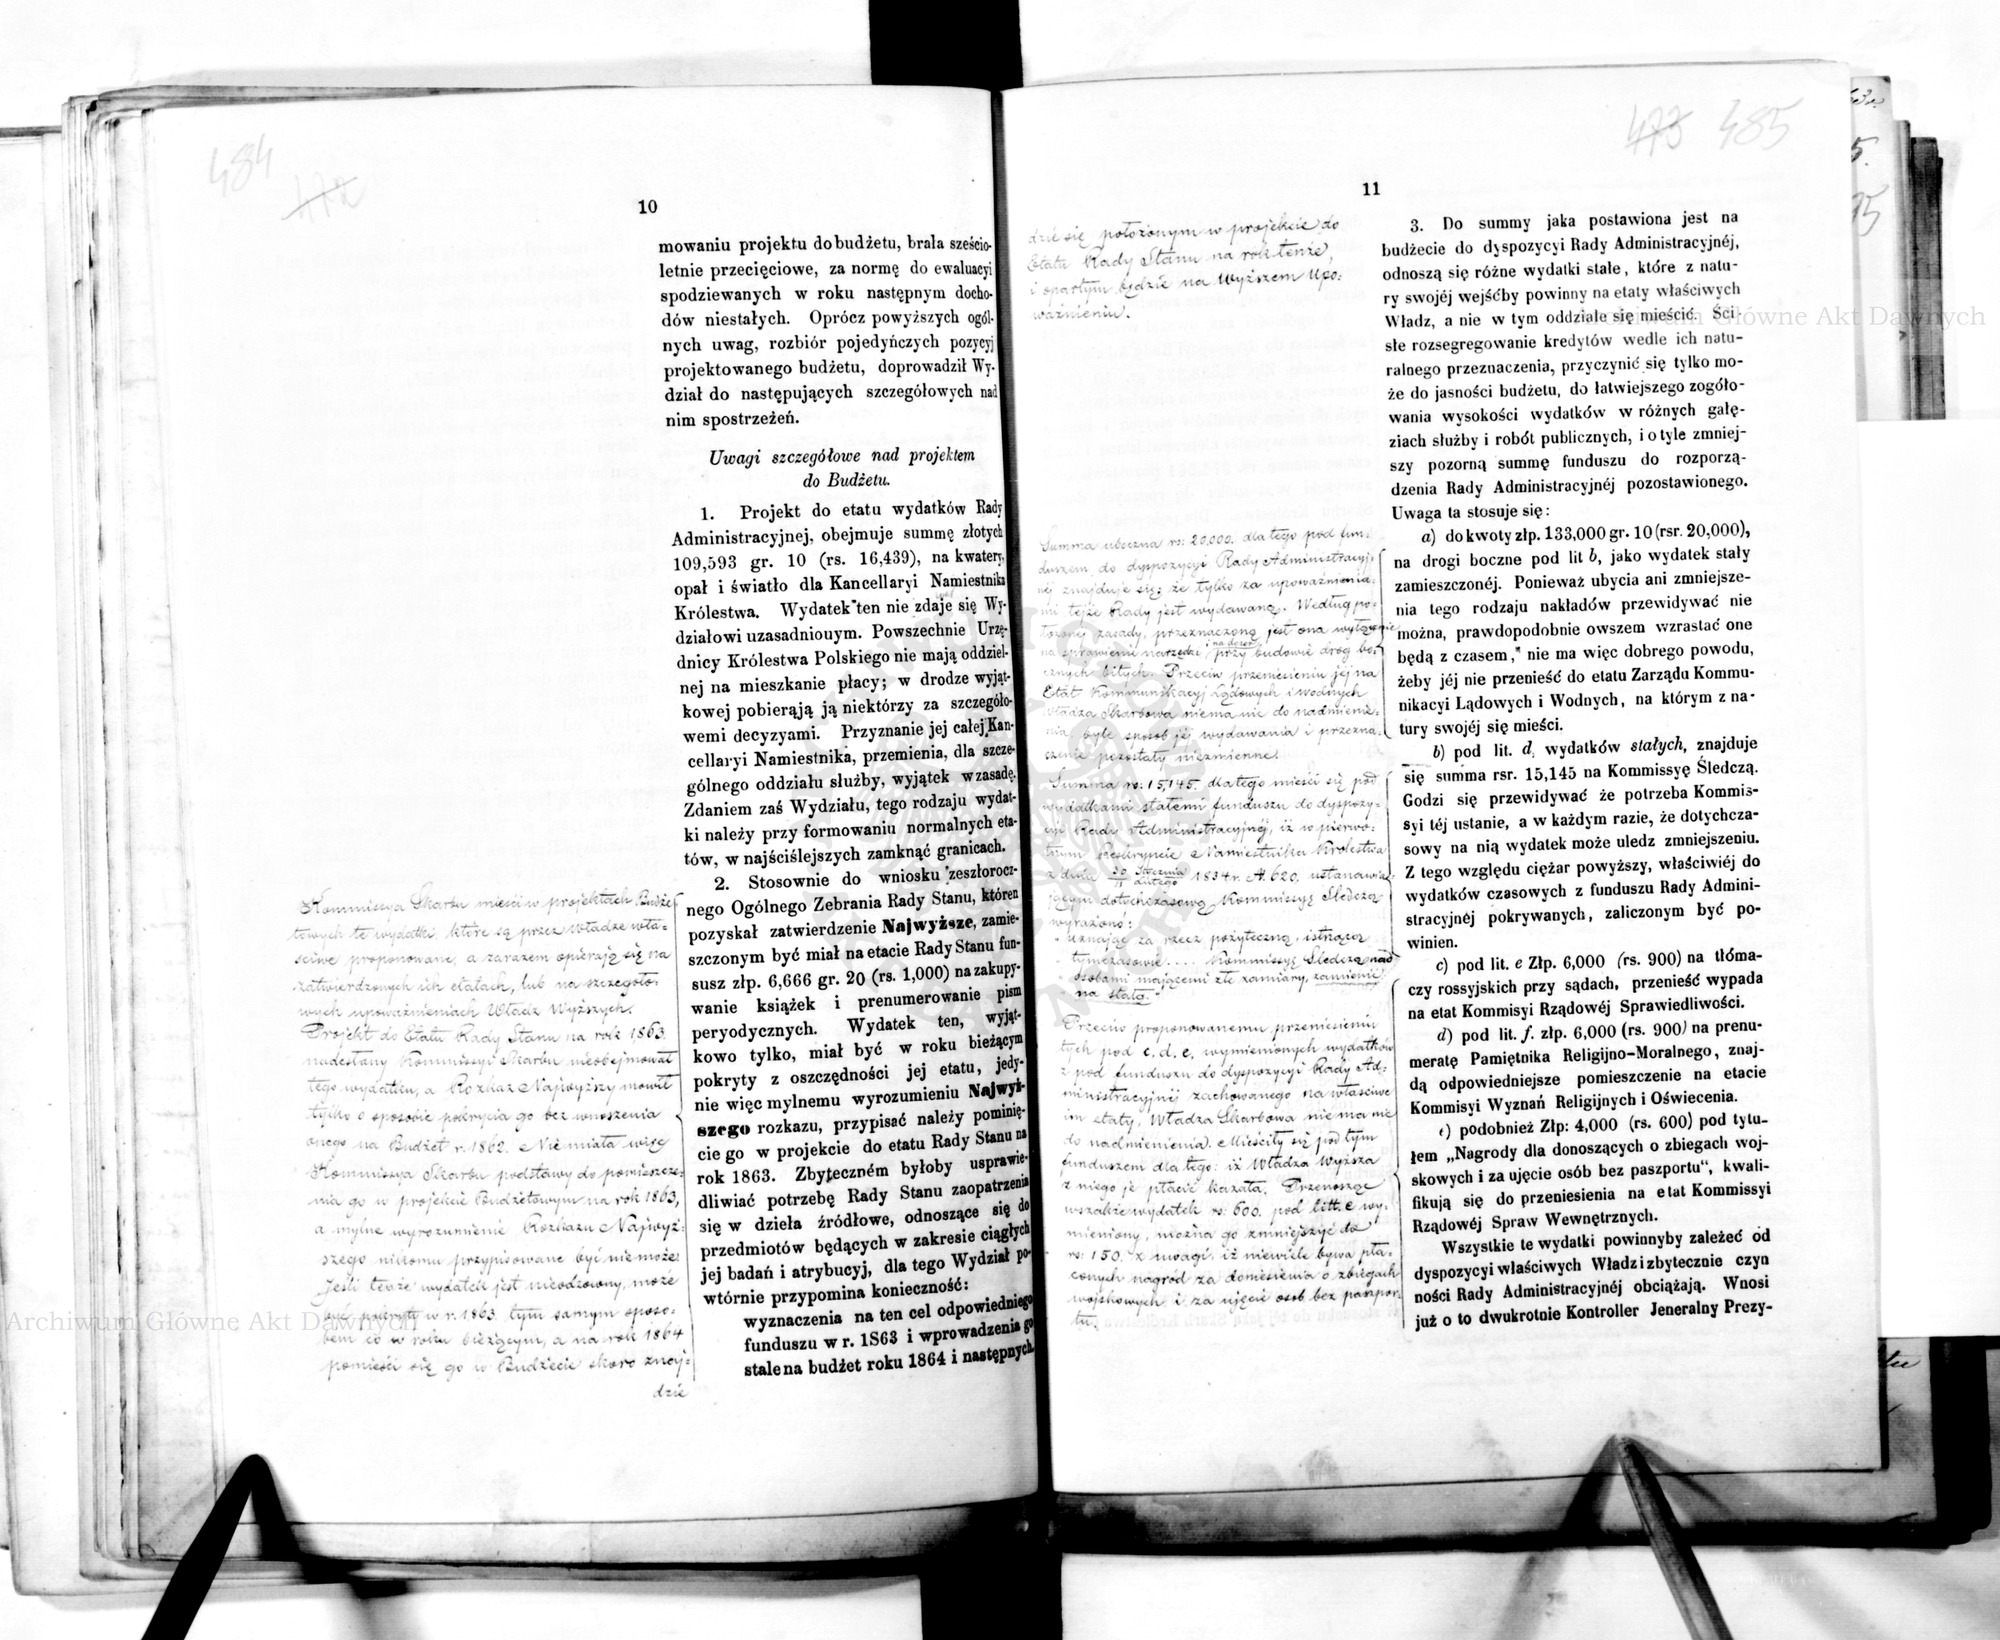 484
472
10
mowaniu projektu do budżetu, brała sześcio-
letnie przecięciowe, za normę do ewaluacyi
spodziewanych w roku następnym docho-
dów niestałych. Oprócz powyższych ogól-
nych uwag, rozbiór pojedyńczych pozycyj
projektowanego budżetu, doprowadził Wy-
dział do następujących szczegółowych nad
nim spostrzeżeń.
Uwagi szczegółowe nad projektem
do Budżetu.
1. Projekt do etatu wydatków Rady
Administracyjnej, obejmuje summę złotych
109,593 gr. 10 (rs. 16,439), na kwatery,
opał i światło dla Kancellaryi Namiestnika
Królestwa. Wydatek ten nie zdaje się Wy-
działowi uzasadnionym. Powszechnie Urzę-
dnicy Królestwa Polskiego nie mają oddziel-
nej na mieszkanie płacy; w drodze wyjąt-
kowej pobierąją ją niektórzy za szczegóło-
wemi decyzyami. Przyznanie jej całej Kan-
cellaryi Namiestnika, przemienia, dla szcze-
gólnego oddziału służby, wyjątek w zasadę.
Zdaniem zaś Wydziału, tego rodzaju wydat-
ki należy przy formowaniu normalnych eta-
tów, w najściślejszych zamknąć granicach.
2. Stosownie do wniosku zeszłorocz-
nego Ogólnego Zebrania Rady Stanu, któren
pozyskał zatwierdzenie Najwyższe, zamie-
szczonym być miał na etacie Rady Stanu fun-
susz złp. 6,666 gr. 20 (rs. 1,000) na zakupy-
wanie książek i prenumerowanie pism
peryodycznych. Wydatek ten, wyjąt-
kowo tylko, miał być w roku bieżącym
pokryty z oszczędności jej etatu, jedy-
nie więc mylnemu wyrozumieniu Najwyż-
szego rozkazu, przypisać należy pominię-
cie go w projekcie do etatu Rady Stanu na
rok 1863. Zbyteczném byłoby usprawie-
dliwiać potrzebę Rady Stanu zaopatrzenia
się w dzieła źródłowe, odnoszące się do
przedmiotów będących w zakresie ciągłych
jej badań i atrybucyj, dla tego Wydział po-
wtórnie przypomina konieczność:
wyznaczenia na ten cel odpowiedniego
funduszu w r. 1S63 i wprowadzenia go
stale na budżet roku 1864 i następnych.
Kommissya Skarbu mieści w projektach Budże-
towych te wydatki, które są przez władze wła-
ściwe proponowane, a zarazem opierają się na
zatwierdzonych ich etatach, lub na szczegóło-
wych upoważnieniach Władz Wyższych.
Projekt do Etatu Rady Stanu na rok 1863
nadesłany Kommissyi Skarbu nieobejmował
tego wydatku, a Rozkaz Najwyższy mówił
tylko o sposobie pokrycia go bez wnoszenia
onego na Budżet r. 1862. Nie miała więc
Kommissya Skarbu podstawy do pomieszcze-
nia go w projekcie Budżetowym na rok 1863,
a mylne wyrozumienie Rozkazu Najwyż-
szego nikomu przypisowane być nie może.
Jeśli teraz wydatek jest nieodzowny, może
być pokryty w r. 1863 tym samym sposo-
bem co w roku bieżącym, a na rok 1864
pomieści się go w Budżecie skoro znaj-
dzie
473 485
11
dzie się położonym w projekcie do
Etatu Rady Stanu na rok tenże,
i opartym będzie na Wyższem upo-
ważnieniu.
Summa uboczna rs: 20,000. dla tego pod fun-
duszem do dyspozycyi Rady Administracyj-
néj znajduje się; że tylko za upoważnienia-
mi tejże Rady jest wydawaną. Według po-
łożonej zasady, przeznaczoną jest ona wyłącznie
na sprawienie narzędzi i na dozór przy budowie dróg bo-
cznych bitych. Przeciw przeniesieniu jéj na
Etat Kommunikacyj Lądowych i wodnych
Władza Skarbowa niema nic do nadmienie-
nia byle sposób jéj wydawania i przezna-
czenie pozostały niezmienne.
Summa rs: 15,145. dla tego mieści się pod
wydatkami stałemi funduszu do dyspozy-
cyi Rady Administracyjnéj, iż w pierwo-
tnym Reskrypcie Namiestnika Królestwa
z dnia 30 Stycznia / 11 Lutego 1834 r. N. 620. ustanawia-
jącym dotychczasową Kommissyę Śledczą
wyrażono:
„Uznając za rzecz pożyteczną, istniejącą
„tymczasowie .... Kommissyę Śledczą nad
„osobami mającemi złe zamiary, zamienić
„na stałą."
Przeciw proponowanemu przeniesieniu
tych pod c, d, e, wymienionych wydatków
z pod funduszu do dyspozycyi Rady Ad-
ministracyjnéj zachowanego na właściwe
im etaty, Władza Skarbowa nie ma nic
do nadmienienia. Mieściły się pod tym
funduszem dla tego: iż Władza Wyższa
z niego je płacić kazała. Przenosząc
wszakże wydatek rs: 600. pod litt. e wy-
mieniony, można go zmniejszyć do
rs: 150. z uwagi, iż niewiele bywa pła-
conych nagród za doniesienia o zbiegach
wojskowych i za ujęcie osób bez paszpor-
tu.
3. Do summy jaka postawiona jest na
budżecie do dyspozycyi Rady Administracyjnéj,
odnoszą się różne wydatki stałe, które z natu-
ry swojéj wejśćby powinny na etaty właściwych
Władz, a nie w tym oddziale się mieścić. Ści
słe rozsegregowanie kredytów wedle ich natu-
ralnego przeznaczenia, przyczynić się tylko mo-
że do jasności budżetu, do łatwiejszego zogóło-
wania wysokości wydatków w różnych gałę-
ziach służby i robót publicznych, i o tyle zmniej-
szy pozorną summę funduszu do rozporzą-
dzenia Rady Administracyjnéj pozostawionego.
Uwaga ta stosuje się:
a) do kwoty złp. 133,000 gr. 10 (rsr. 20,000),
na drogi boczne pod lit b, jako wydatek stały
zamieszczonéj. Ponieważ ubycia ani zmniejsze-
nia tego rodzaju nakładów przewidywać nie
można, prawdopodobnie owszem wzrastać one
będą z czasem, nie ma więc dobrego powodu,
żeby jéj nie przenieść do etatu Zarządu Kommu-
nikacyi Lądowych i Wodnych, na którym z na-
tury swojéj się mieści.
b) pod lit. d, wydatków stałych, znajduje
się summa rsr. 15,145 na Kommissyę Śledczą.
Godzi się przewidywać że potrzeba Kommis-
syi téj ustanie, a w każdym razie, że dotychcza-
sowy na nią wydatek może uledz zmniejszeniu.
Z tego względu ciężar powyższy, właściwiéj do
wydatków czasowych z funduszu Rady Admini-
stracyjnéj pokrywanych, zaliczonym być po-
winien.
c) pod lit. e Złp. 6,000 (rs. 900) na tłóma-
czy rossyjskich przy sądach, przenieść wypada
na etat Kommisyi Rządowéj Sprawiedliwości.
d) pod lit. f. złp. 6,000 (rs. 900) na prenu-
meratę Pamiętnika Religijno-Moralnego, znaj-
dą odpowiedniejsze pomieszczenie na etacie
Kommisyi Wyznań Religijnych i Oświecenia.
e) podobnież Złp: 4,000 (rs. 600) pod tytu-
łem „Nagrody dla donoszących o zbiegach woj-
skowych i za ujęcie osób bez paszportu“, kwali-
fikują się do przeniesienia na etat Kommissyi
Rządowéj Spraw Wewnętrznych.
Wszystkie te wydatki powinnyby zależeć od
dyspozycyi właściwych Władz i zbytecznie czyn
ności Rady Administracyjnéj obciążają. Wnosi
już o to dwukrotnie Kontroller Jeneralny Prezy-
Archiwum Główne Akt Dawnych
Archiwum Główne Akt Dawnych